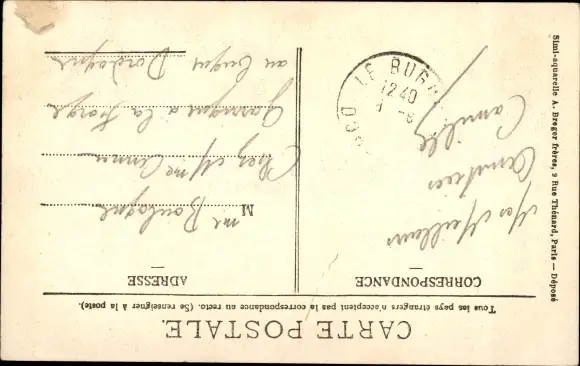 CARTE POSTALE.
Tous les pays étrangers n'acceptent pas la correspondance au recto. (Se renseigner à la poste).
CORRESPONDANCE
Mes Meilleures
Amitiées
Camille
LE BUGUE
12 40
DORD
ADRESSE
M me Boulogne
Chez Mme
Garrigue à la Forge
au Bugue Dordogne
Simi-aquarelle A. Breger frères, 9 Rue Thénard, Paris — Déposé